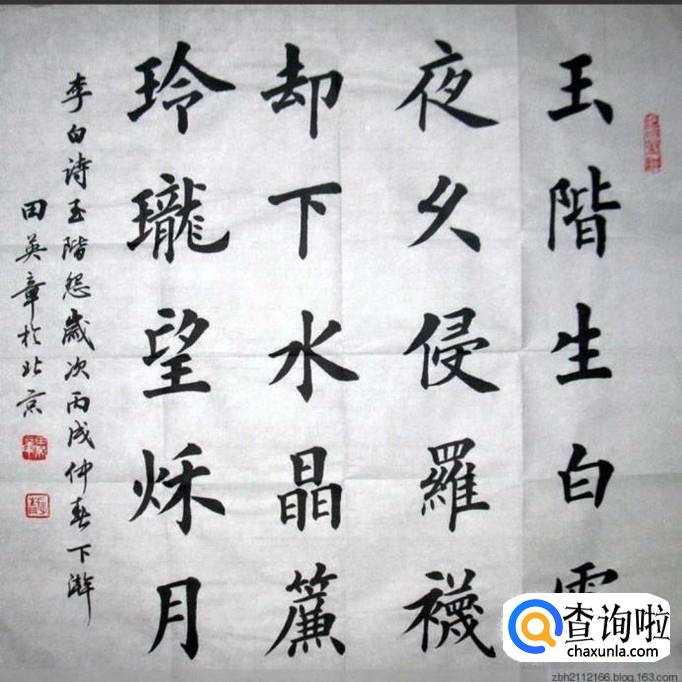 玉階生白
夜久侵羅襪
却下水晶簾
玲瓏望秋月
李白詩玉階怨歲次丙戌仲春下澣
田英章於北京
查询啦
chaxunla.com
zbh2112166.blog.163.com